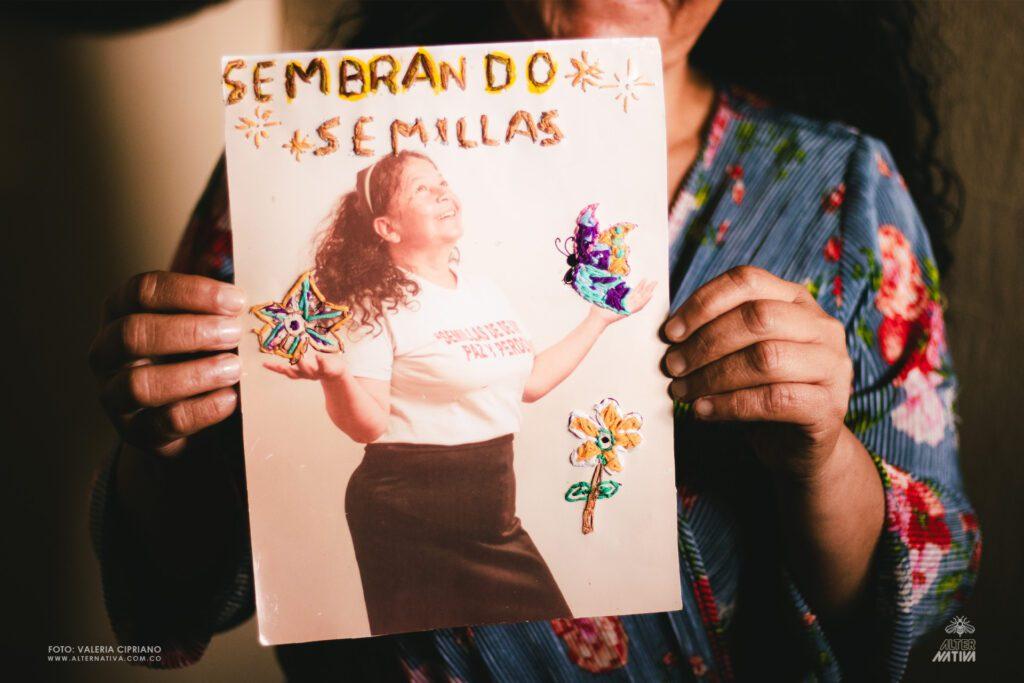 SEMBRANDO
SEMILLAS
SEMILLAS DE
PAZ Y
FOTO: VALERIA CIPRIANO
WWW.ALTERNATIVA.COM.CO
ALTER
NATIVA